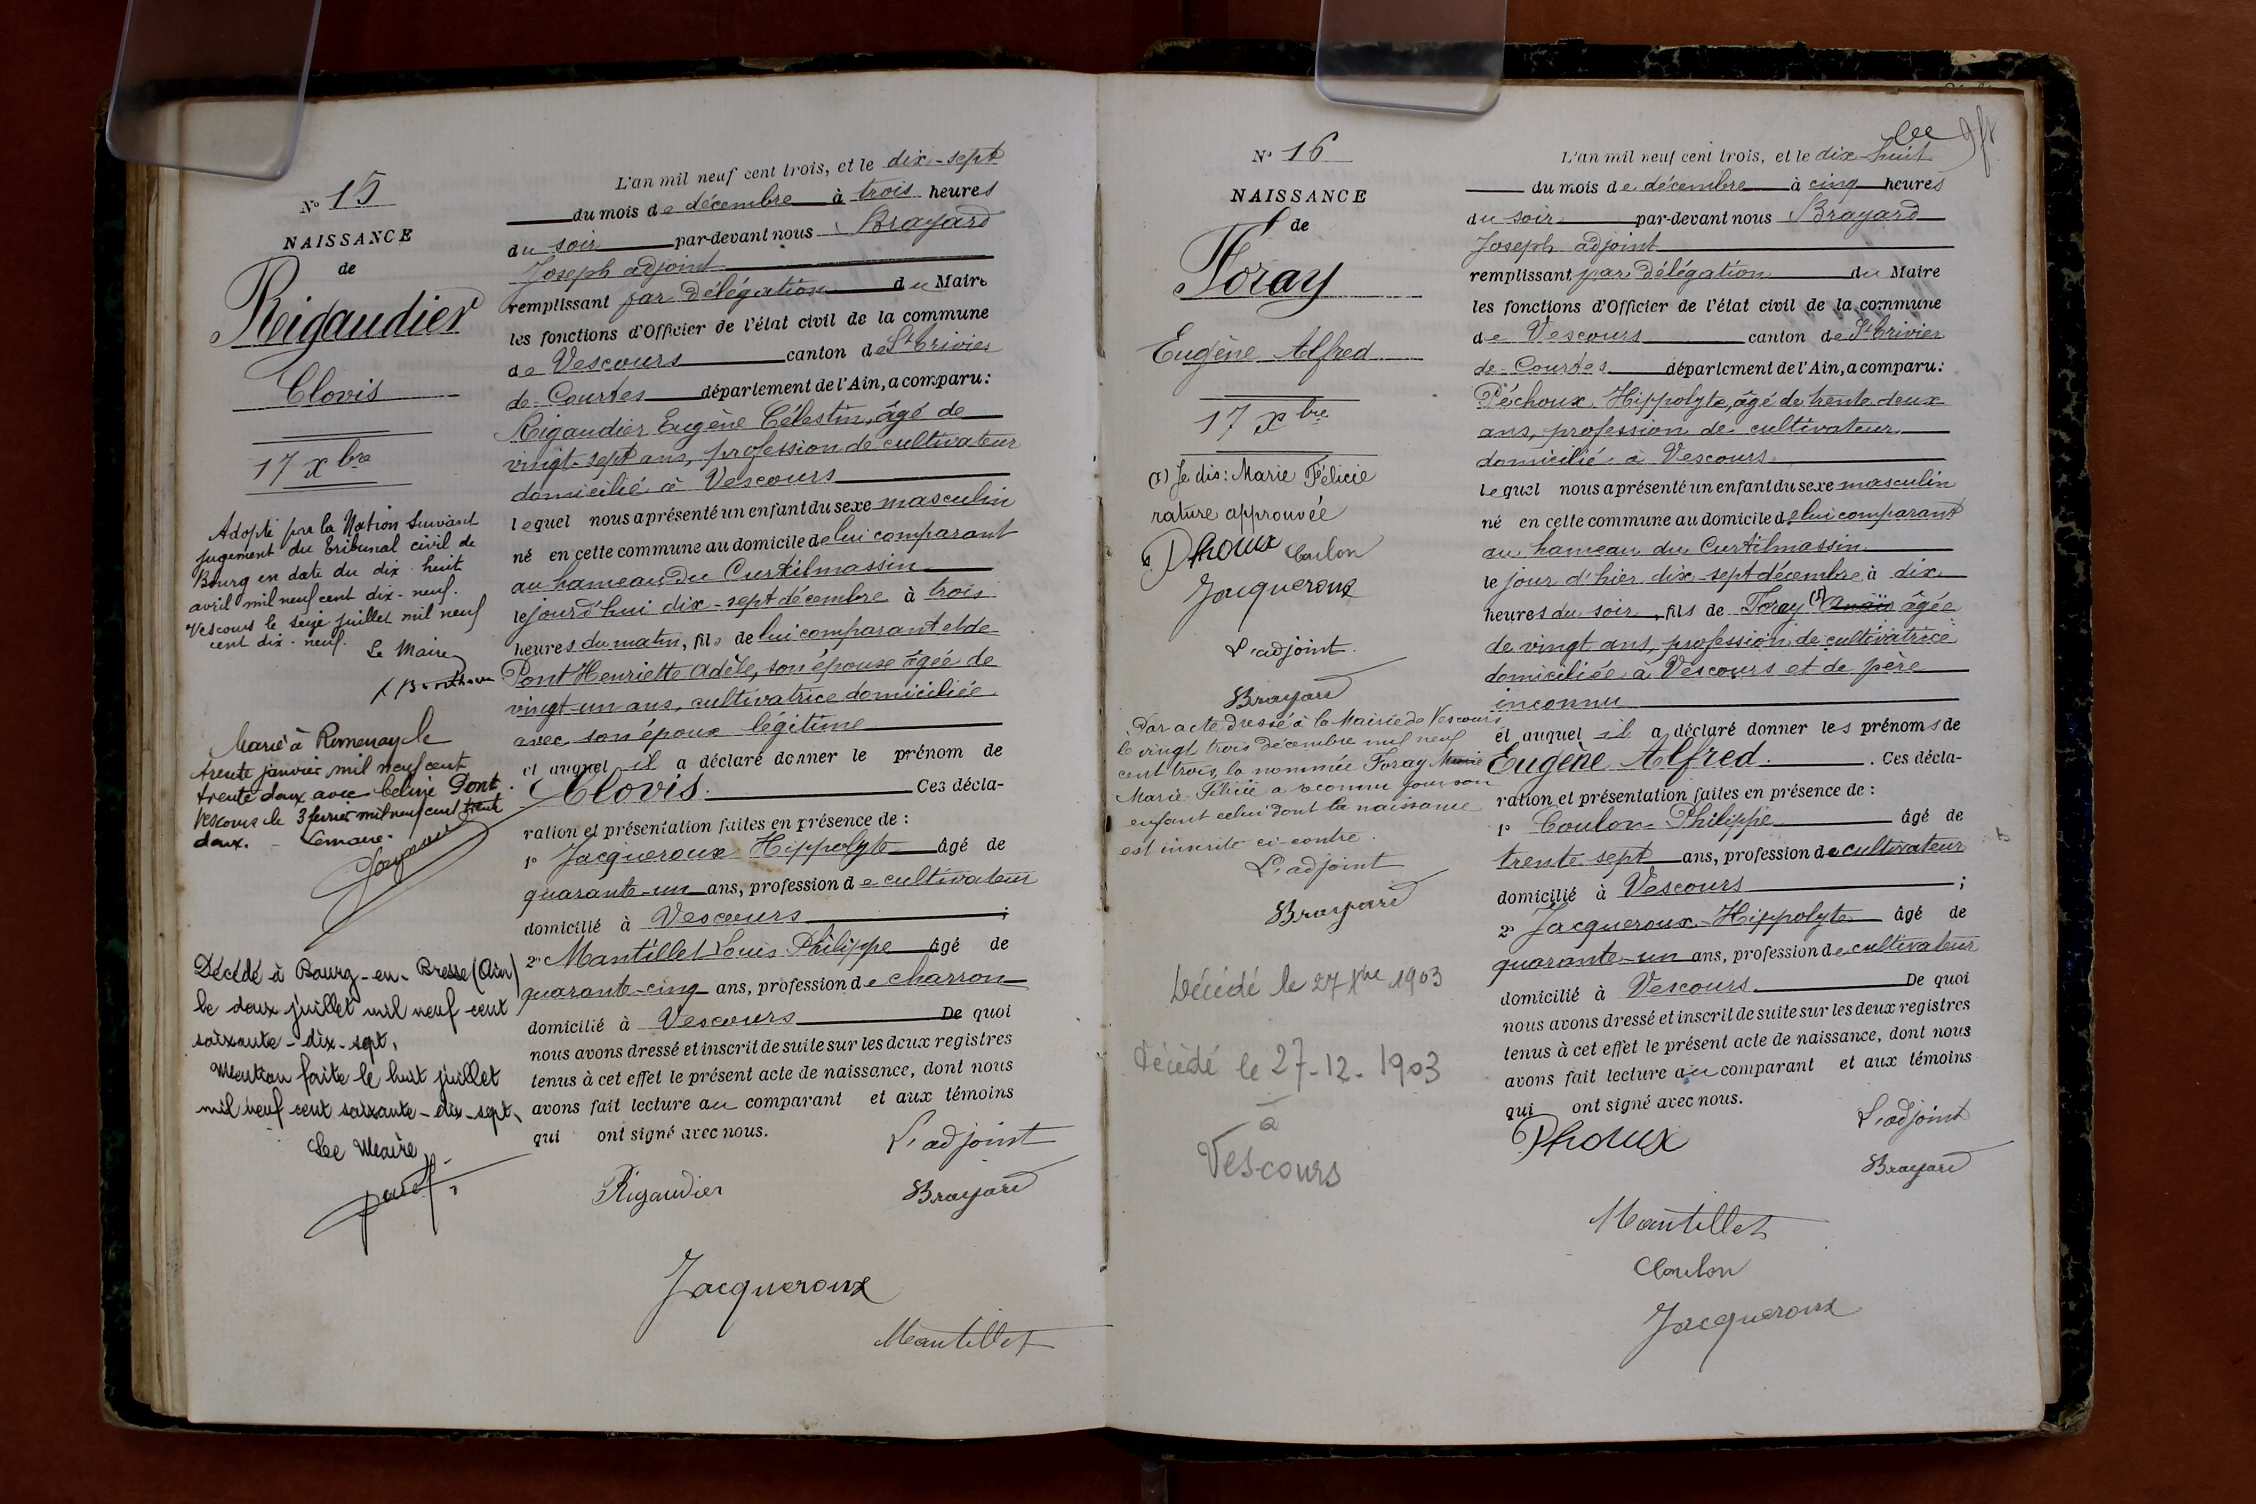 N° 15
NAISSANCE
de
Rigaudier
Clovis
17 xbre
Adopté par la Nation suivant
jugement du Tribunal civil de
Bourg en date du dix-huit
avril mil neuf cent dix-neuf.
Vescours le seize juillet mil neuf
cent dix-neuf.
Le Maire
Marié à Romenay le
trente janvier mil neuf cent
trente deux avec Celine Pont.
Vescours le 3 fevrier mil neuf cent trente
deux. Lemaire.
Décédé à Bourg-en-Bresse (Ain)
le deux juillet mil neuf cent
soixante-dix-sept.
Mention faite le huit juillet
mil neuf cent soixante-dix-sept.
Le Maire
L'an mil neuf cent trois, et le dix-sept
du mois de décembre à trois heures
du soir par-devant nous Brayard
Joseph adjoint
remplissant par délégation du Maire
les fonctions d'Officier de l'état civil de la commune
de Vescours canton de St Trivier
de Courtes département de l'Ain, a comparu :
Rigaudier Eugène Célestin, âgé de
vingt-sept ans, profession de cultivateur
domicilié à Vescours
lequel nous a présenté un enfant du sexe masculin
né en cette commune au domicile de lui comparant
au hameau du Curtilmassin
le jourd'hui dix-sept décembre à trois
heures du matin, fils de lui comparant et de
Pont Henriette Adèle, son épouse âgée de
vingt-un ans, cultivatrice domiciliée
avec son époux légitime
et auquel il a déclaré donner le prénom de
Clovis. Ces décla-
ration et présentation faites en présence de :
1° Jacqueroux Hippolyte âgé de
quarante-un ans, profession de cultivateur
domicilié à Vescours ;
2° Mantillet Louis Philippe âgé de
quarante-cinq ans, profession de charron
domicilié à Vescours De quoi
nous avons dressé et inscrit de suite sur les deux registres
tenus à cet effet le présent acte de naissance, dont nous
avons fait lecture au comparant et aux témoins
qui ont signé avec nous.
L'adjoint
Rigaudier Brayard
Jacqueroux
Mantillet
N° 16
NAISSANCE
de
Foray
Eugène Alfred
17 xbre
(1) Je dis : Marie Félicie
rature approuvée
Phoux Coulon
Jacqueroux
L'adjoint.
Brayard
Par acte dressé à la Mairie de Vescours
le vingt trois décembre mil neuf
cent trois, la nommée Foray Marie
Marie Félicie a reconnu pour son
enfant celui dont la naissance
est inscrite ci-contre.
L'adjoint
Brayard
Décédé le 27 Xbre 1903
Décédé le 27-12-1903
à
Vescours
L'an mil neuf cent trois, et le dix-huit
du mois de décembre à cinq heures
du soir par-devant nous Brayard
Joseph adjoint
remplissant par délégation du Maire
les fonctions d'Officier de l'état civil de la commune
de Vescours canton de St Trivier
de Courtes département de l'Ain, a comparu :
Péchoux Hippolyte, âgé de trente deux
ans, profession de cultivateur
domicilié à Vescours
lequel nous a présenté un enfant du sexe masculin
né en cette commune au domicile de lui comparant
au hameau du Curtilmassin
le jour d'hier dix-sept décembre à dix
heures du soir, fils de Foray (1) Anaïs âgée
de vingt ans, profession de cultivatrice
domiciliée à Vescours et de père
inconnu
et auquel il a déclaré donner les prénoms de
Eugène Alfred. Ces décla-
ration et présentation faites en présence de :
1° Coulon Philippe âgé de
trente sept ans, profession de cultivateur
domicilié à Vescours ;
2° Jacqueroux Hippolyte âgé de
quarante-un ans, profession de cultivateur
domicilié à Vescours. De quoi
nous avons dressé et inscrit de suite sur les deux registres
tenus à cet effet le présent acte de naissance, dont nous
avons fait lecture au comparant et aux témoins
qui ont signé avec nous.
Phoux L'adjoint
Brayard
Mantillet
Coulon
Jacqueroux